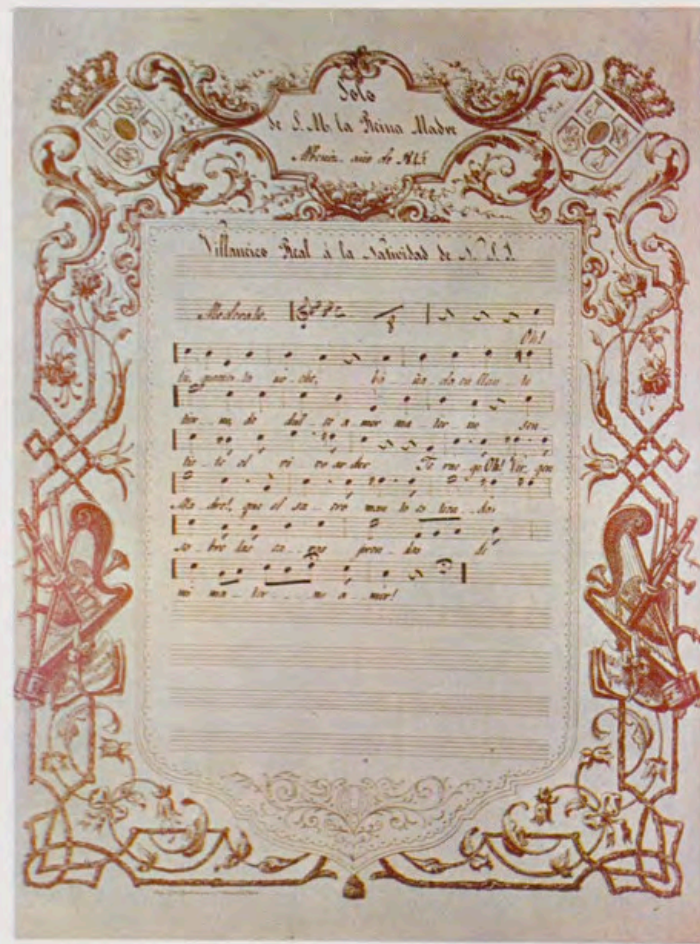 Solo
de S. M. la Reina Madre
Albeniz año de 1845
Villancico Real á la Natividad de N. S. J.
Moderato.
8
Oh!
no - che, en llan - to
tier - no, de dul - ce a - mor ma - ter - no sen -
tis - te el vi - vo ar - dor Te rue - go Oh! Vir - gen
Ma - dre!, que el sa - cro man - to es tien - das
so - bre las ca - ras pren - das de
mi ma - ter - no a - mor!